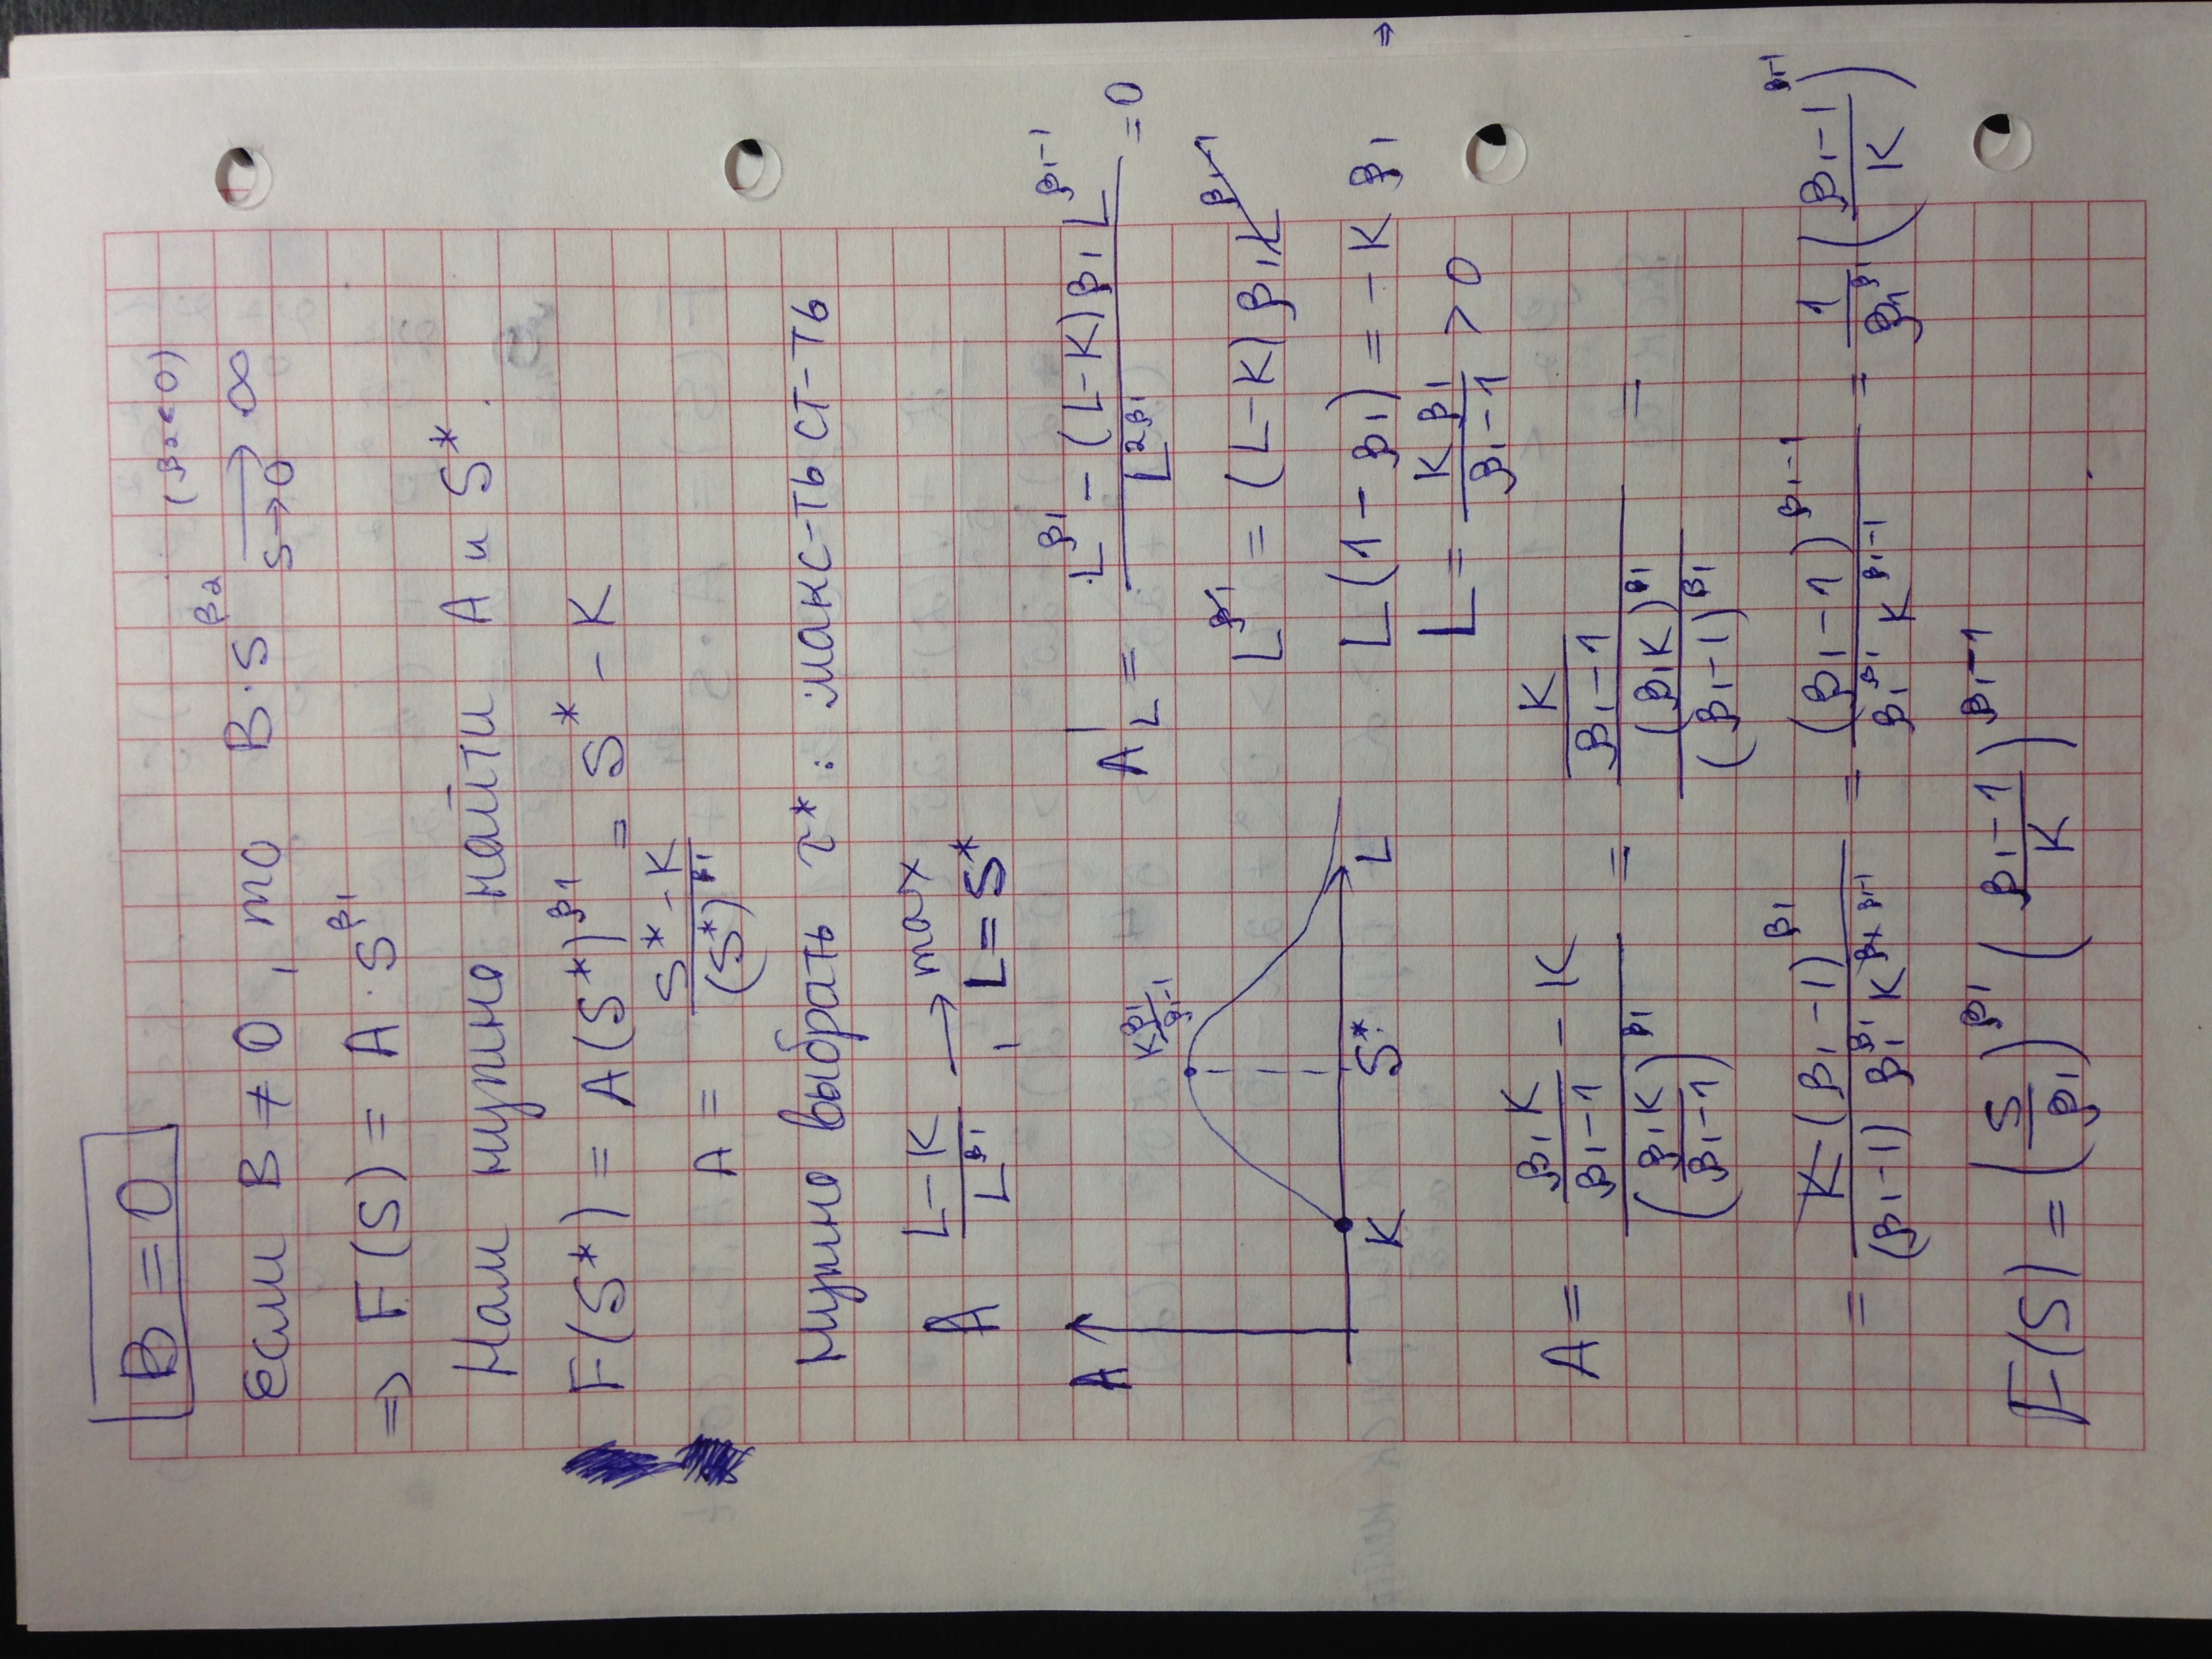 B = 0
Если B ≠ 0, то B·S^β₂ →_{S→0} ∞ (β₂<0)
⇒ F(S) = A·S^β₁
Нам нужно найти A и S*.
F(S*) = A(S*)^β₁ = S* − K
A = (S* − K)/(S*)^β₁
Нужно выбрать τ*: макс-ть ст-ть
A (L − K)/L^β₁ → max, L = S*
A'_L = (L^β₁ − (L−K)β₁L^(β₁−1))/L^(2β₁) = 0
L^β₁ = (L−K)β₁L^(β₁−1) ⇒
L(1−β₁) = −Kβ₁
L = Kβ₁/(β₁−1) > 0
A
Kβ₁/(β₁−1)
K S* L
A = (β₁K/(β₁−1) − K)/(β₁K/(β₁−1))^β₁ = (K/(β₁−1))/((β₁K)^β₁/(β₁−1)^β₁) =
= K(β₁−1)^β₁/((β₁−1)β₁^β₁K^(β₁ β₁−1)) = (β₁−1)^(β₁−1)/(β₁^β₁K^(β₁−1)) = 1/β₁^β₁ ((β₁−1)/K)^(β₁−1)
F(S) = (S/β₁)^β₁ ((β₁−1)/K)^(β₁−1)